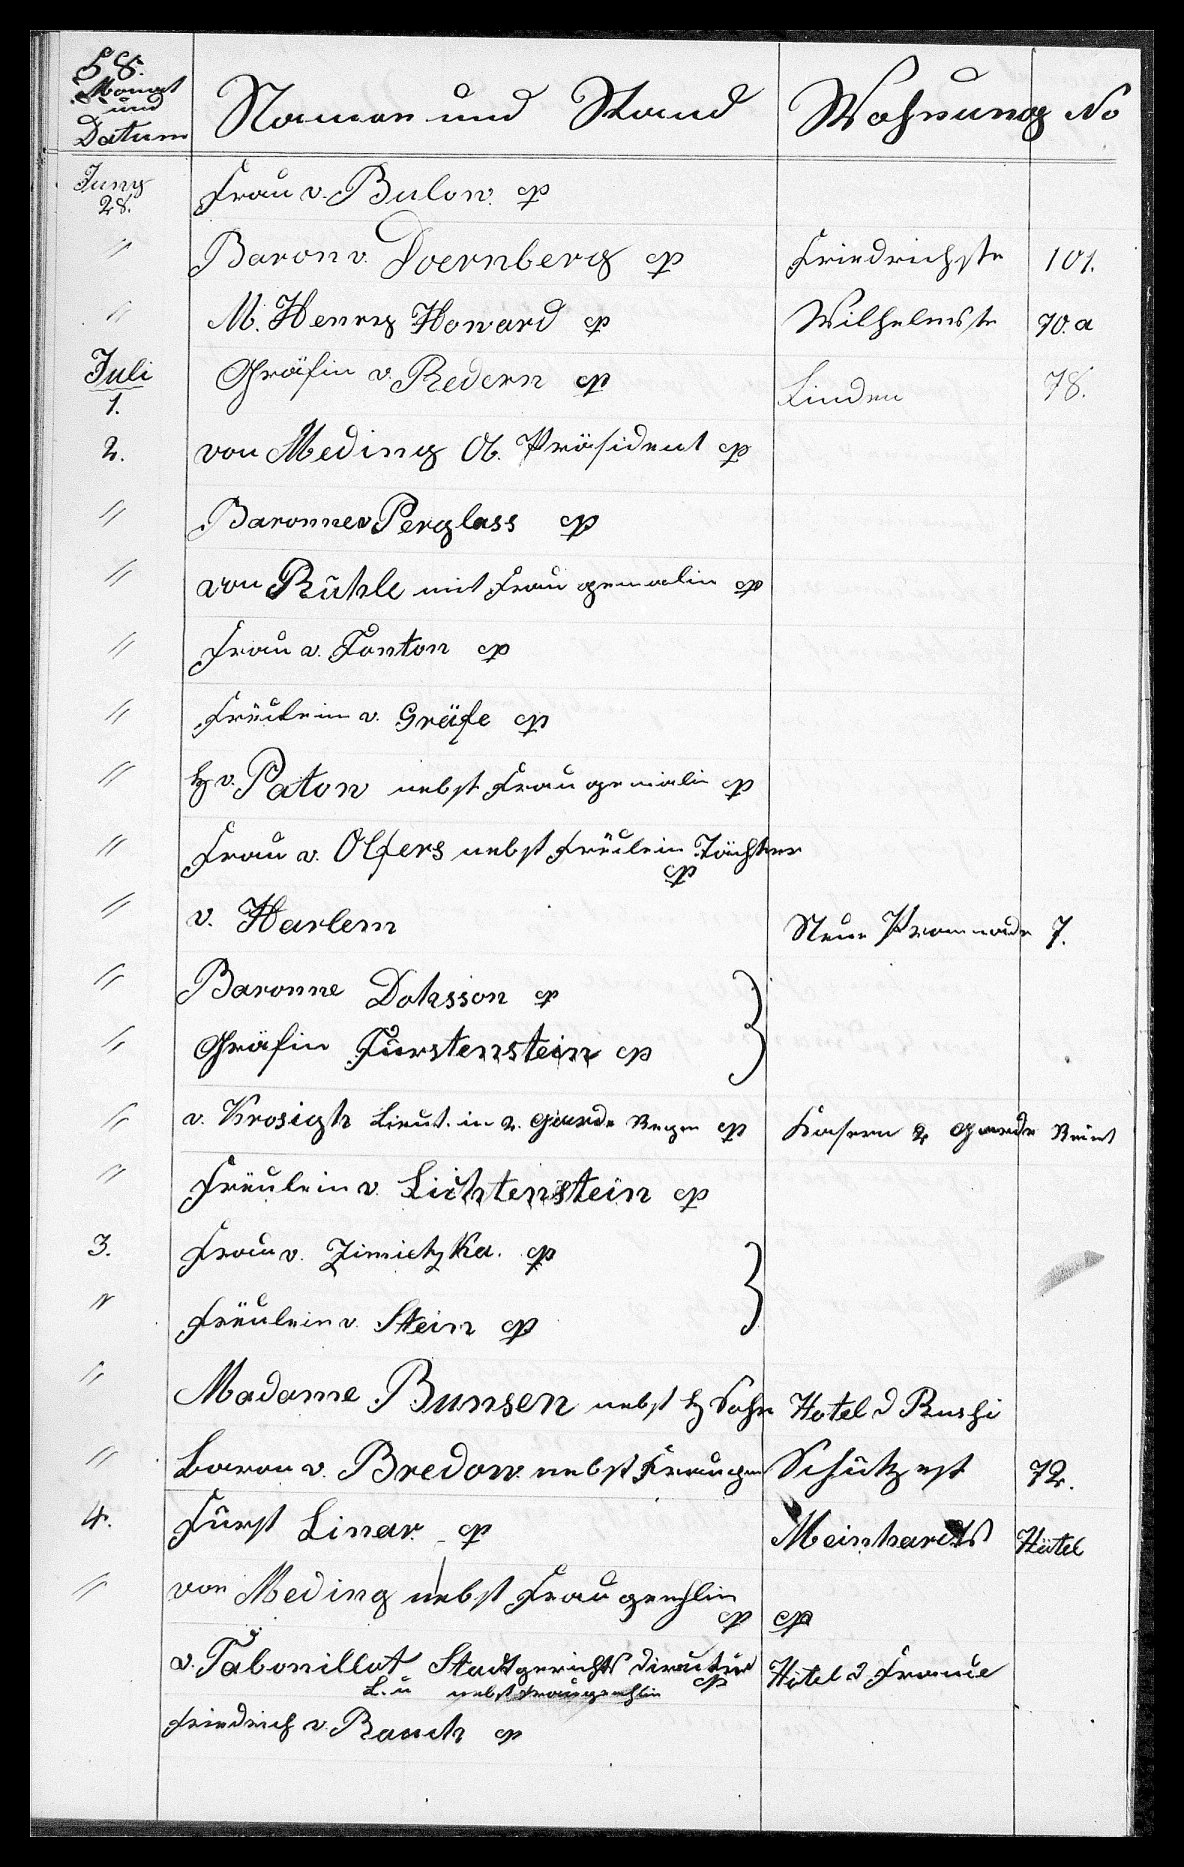 58.
Monat und Datum Namen und Stand Wohnung No
Juny 28. Frau v. Bulow. cp
" Baron v. Doernberg cp Friedrichstr 101.
" M. Henry Howard cp Wilhelmstr 70.a
Juli 1. Gräfin v. Redern cp Linden 78.
2. von Meding Ob. Präsident cp
" Baronne v Perglass cp
" von Rühle mit Frau gemalin cp
" Frau v. Fonton cp
" Fräulein v. Gräfe cp
" H v. Paton nebst Frau gemalin cp
" Frau v. Olfers nebst Fräulein Töchter
cp
" v. Harlem Neue Promenade 7.
" Baronne Dohsson cp
" Gräfin Fürstenstein cp
" v. Krosigk Lieut. in 2. Garde Regm cp Kasern 2 Garde
" Fräulein v. Lichtenstein cp
3. Frau v. Zimietzka. cp
" Fräulein v. Stein cp
" Madame Bunsen nebst H Sohn Hotel d Rushi
" Baron v. Bredow nebst Fraugem Schützest 72.
4. Fürst Linar. cp Meinhardts Hôtel
" von Meding nebst Frau gemhlin
cp cp
v. Tabonillot Stadtgerichts Director cp Hôtel d France
L. u nebst Fraugemhlin
Friedrich v. Rauch cp